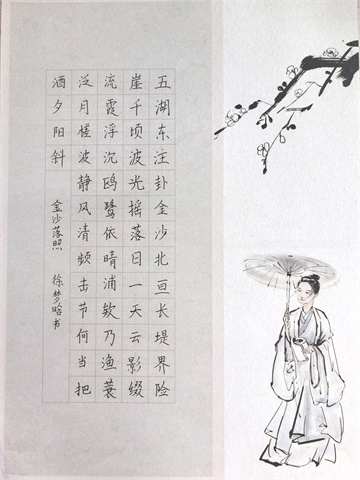 五湖东注卦金沙北亘长堤界险
崖千顷波光摇落日一天云影缀
流霞浮沉鸥鹭依晴浦欸乃渔蓑
泛月槎波静风清频击节何当把
酒夕阳斜
金沙落照 徐梦晗书